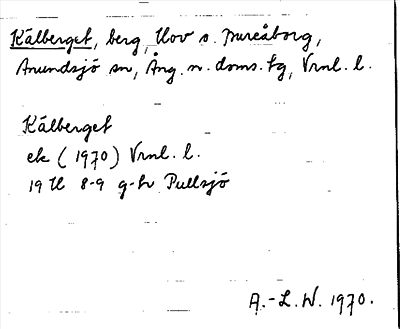 Kälberget, berg, Hov o. Pureåborg,
Anundsjö sn, Ång. n. doms. tg, Vrnl. l.
Kälberget
ek (1970) Vrnl. l.
19 H 8-9 g-h Pullsjö
A.-L. W. 1970.